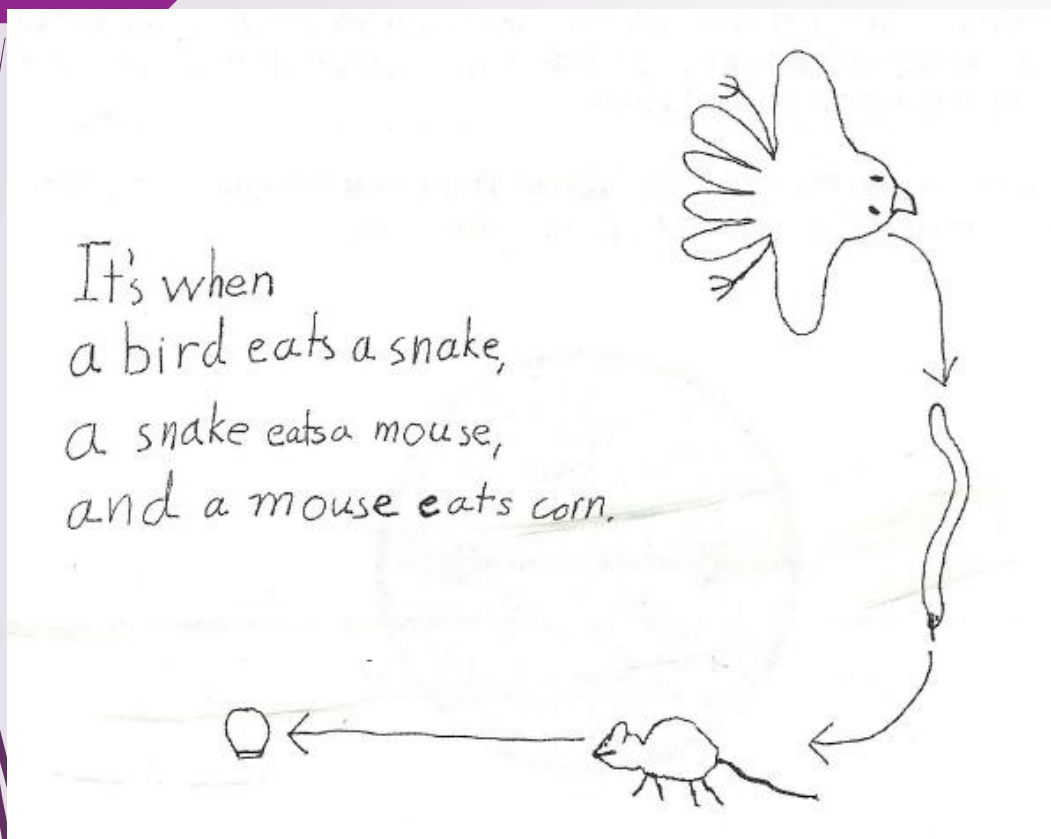 It's when
a bird eats a snake,
a snake eats a mouse,
and a mouse eats corn.